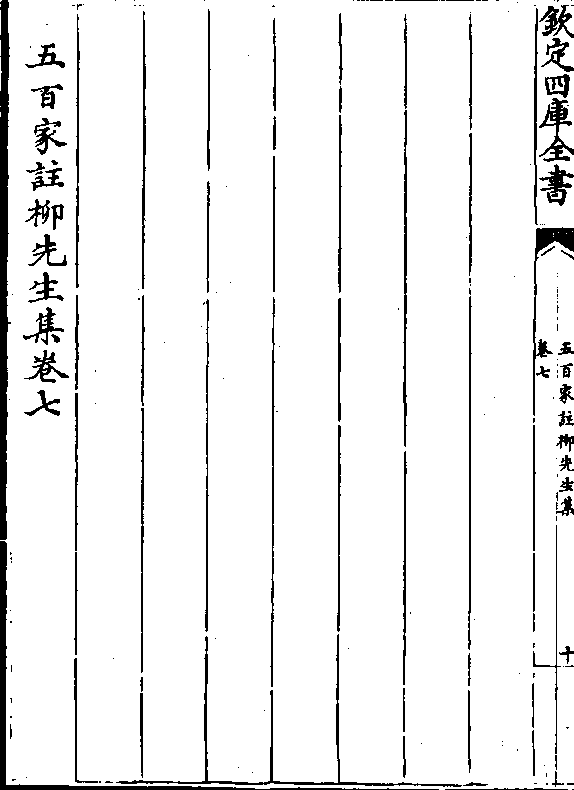 欽定四庫全書
五百家註柳先生集
卷七
十
五百家註柳先生集卷七